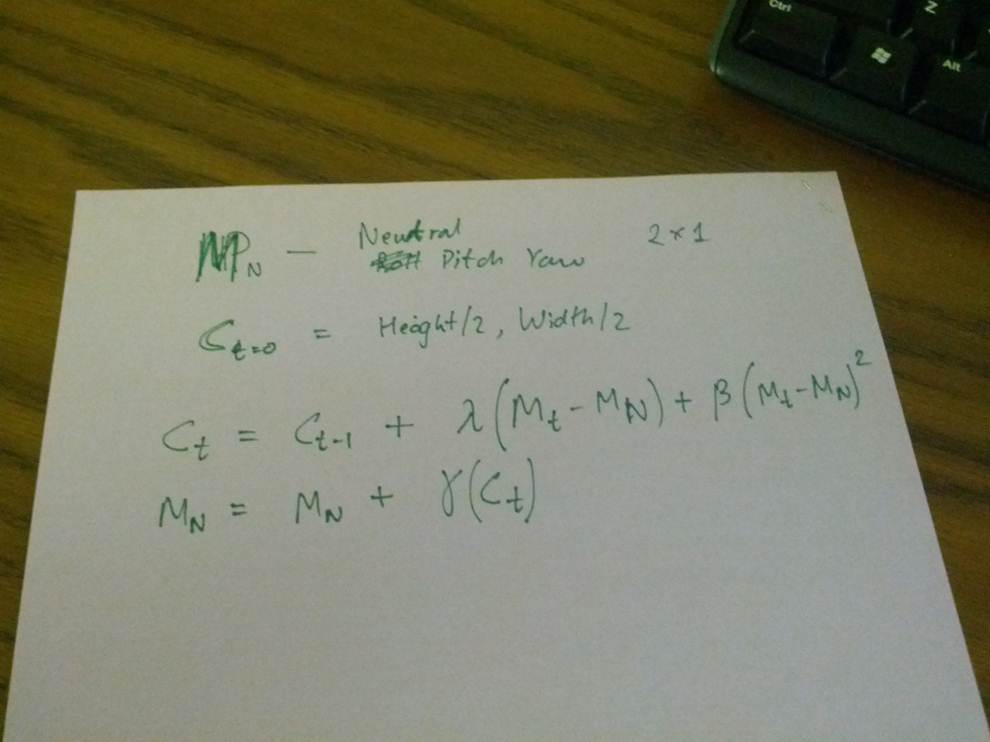 Ctrl
Z
Alt
MP_N — Neutral 2×1
Pitch Yaw
C_{t=0} = Height/2, Width/2
C_t = C_{t-1} + λ(M_t - M_N) + β(M_t - M_N)²
M_N = M_N + γ(C_t)